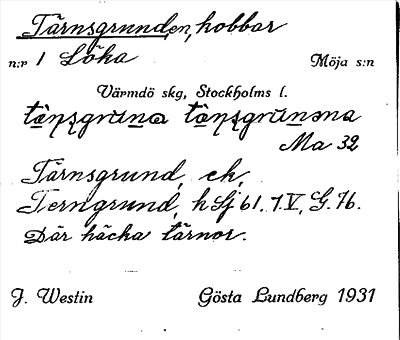 Tärnsgrunden, kobbar
n:r 1 Löka Möja s:n
Värmdö skg, Stockholms l.
Ma 32
Tärnsgrund, ek,
Terngrund, h Sj 61. 1.V, G. 76.
Där häcka tärnor.
J. Westin Gösta Lundberg 1931